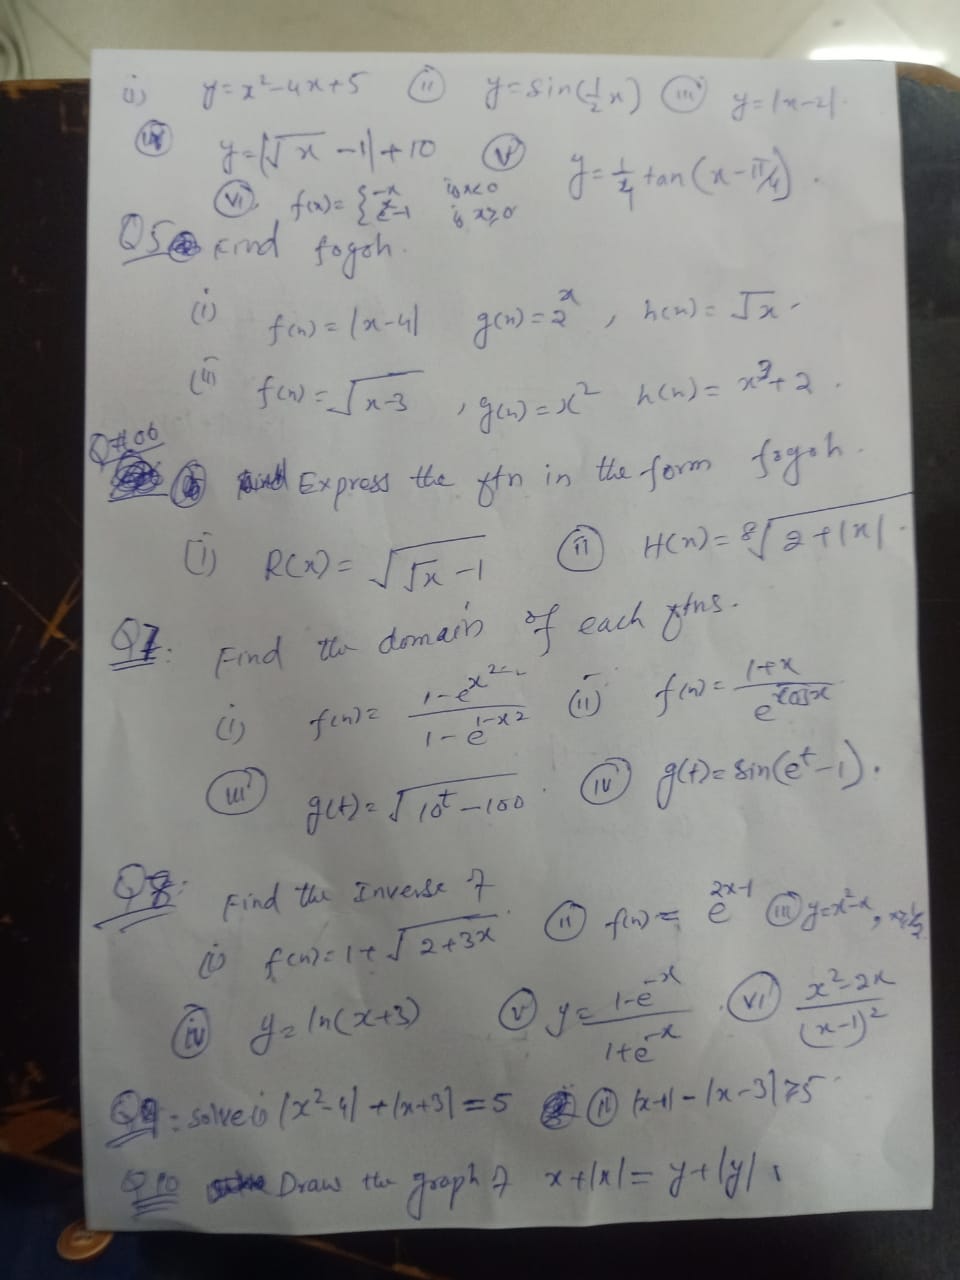 i) y=x²-4x+5 (ii) y=sin(1/2 x) (iii) y=|x-2|.
(iv) y=|√x -1|+10 (v) y=1/4 tan(x-π/4).
(vi) f(x)= { -x if x<0
if x≥0
Q5 Find fogoh.
(i) f(x)=|x-4| g(x)=2^x, h(x)=√x.
(ii) f(x)=√(x-3), g(x)=x² h(x)=x³+2.
Q#06
Express the ftn in the form fogoh.
(i) R(x)=√(√x -1) (ii) H(x)=⁸√(2+|x|).
Q7: Find the domain of each ftns.
(i) f(x)= (1-e^x²)/(1-e^(1-x²)) (ii) f(x)= (1+x)/e^(cosx)
(iii) g(t)=√(10^t -100). (iv) g(t)=sin(e^t-1).
Q8: Find the Inverse of
(i) f(x)=1+√(2+3x). (ii) f(x)= e^(2x-1) (iii) y=x²-x, x≥1/2
(iv) y=ln(x+3) (v) y= (1-e^-x)/(1+e^-x). (vi) (x²-2x)/(x-1)²
Q9: solve i) |x²-4|+|x+3|=5 (ii) |x+1|-|x-3|≥5
Q10 Draw the graph of x+|x|=y+|y|.